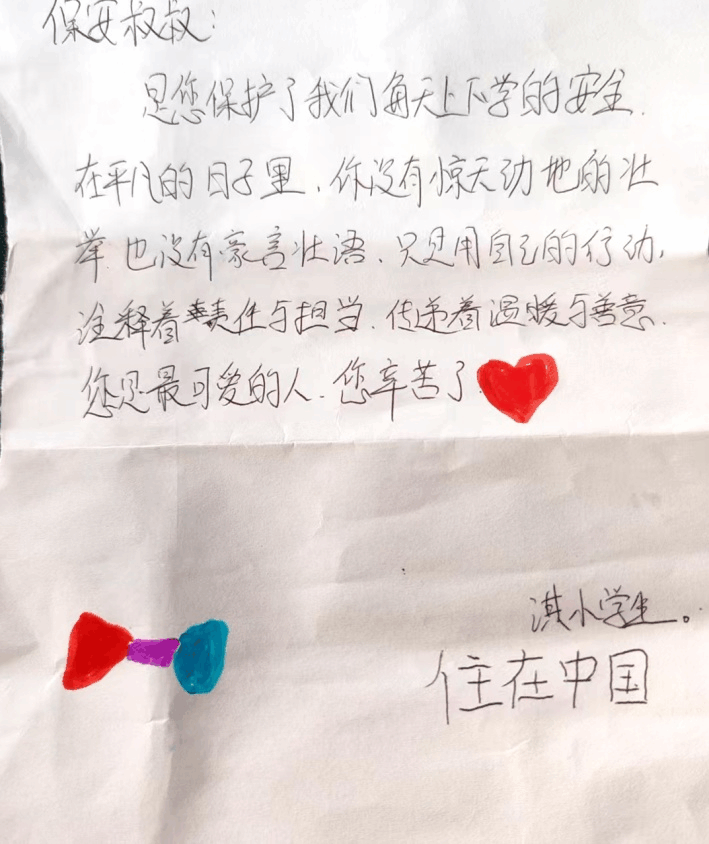 保安叔叔:
是您保护了我们每天上下学的安全.
在平凡的日子里、你没有惊天动地的壮
举.也没有豪言壮语、只是用自己的行动,
诠释着责任与担当.传递着温暖与善意.
您是最可爱的人.您辛苦了
淇小学生。
住在中国